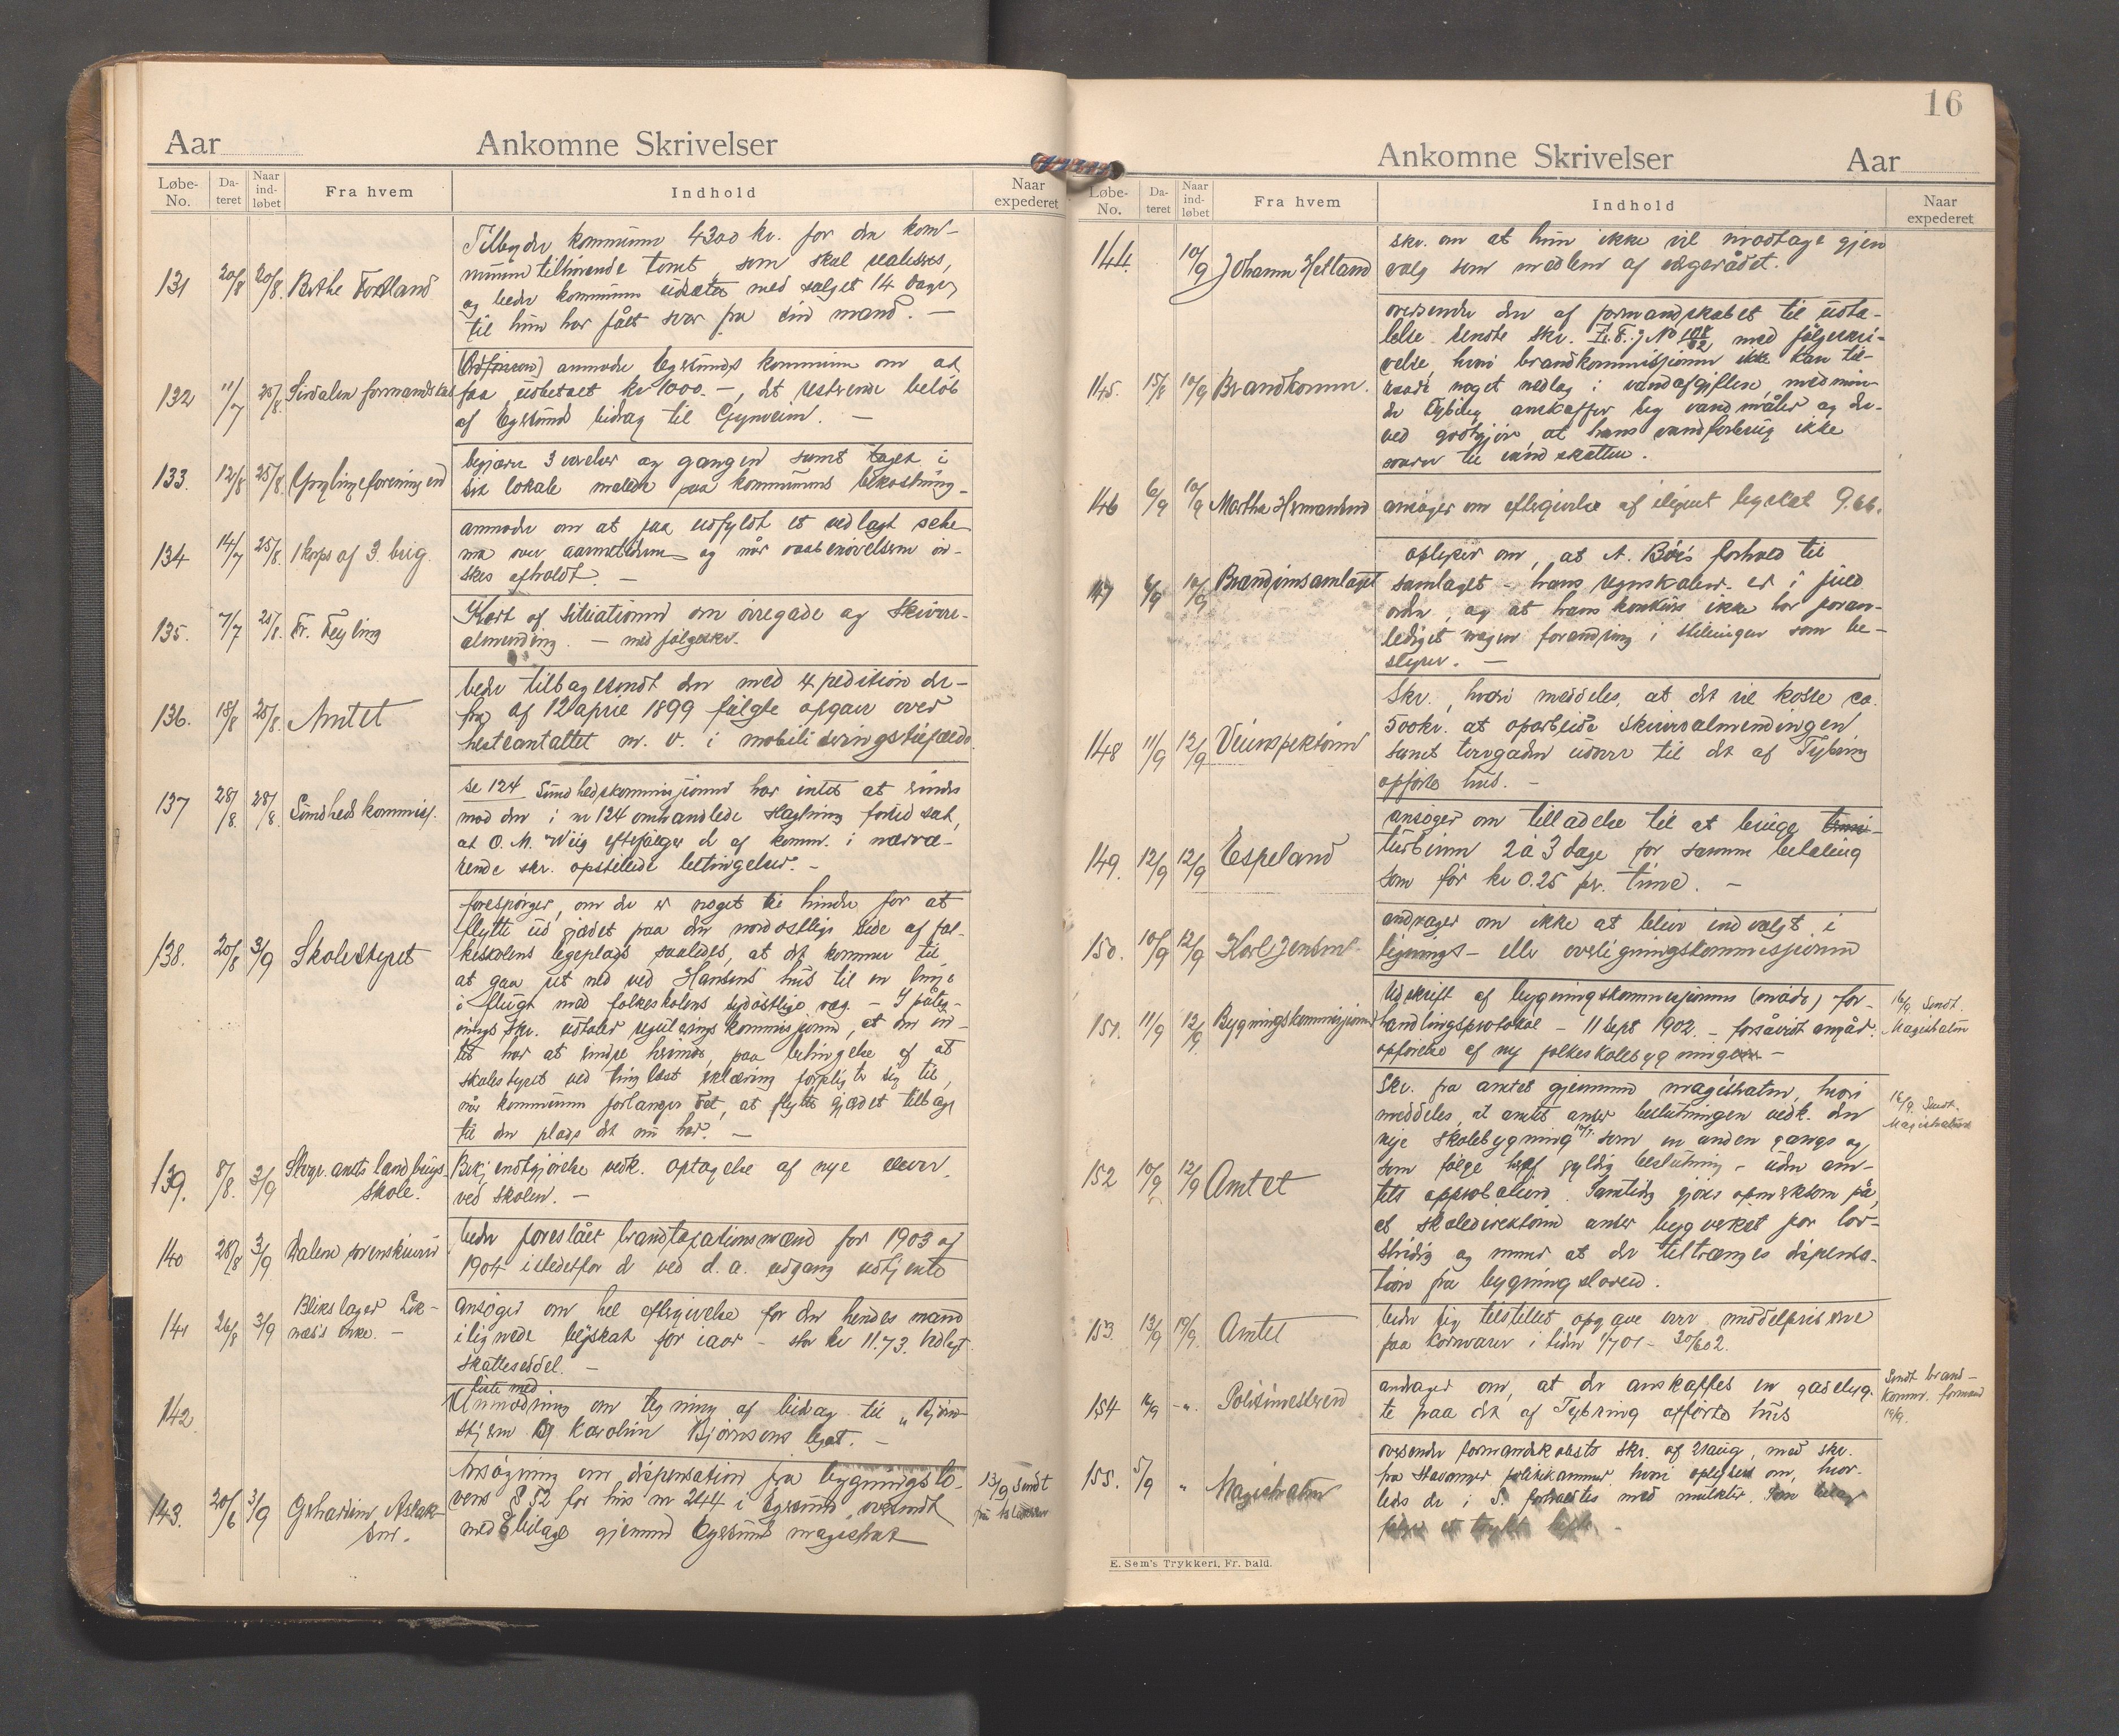 Aar
Ankomne Skrivelser
Løbe-No.
Da-teret
Naar ind-løbet
Fra hvem
Indhold
Naar expederet
131 20/8 20/8. Berthe Foxland
Tilbyder kommunen 4300 kr. for den kom-
munen tilhørende tomt, som skal realiseres,
og beder kommunen udsætte med salget 14 dage,
til hun har fået svar fra sin mand. —
132 11/7 25/8. Sirdalen formandskab
(Ordføreren) anmoder Egersunds kommune om at
faa udbetalt kr 1000.—, det resterende beløb
af Egersunds bidrag til Gyaveien. —
133. 12/8 25/8. Ynglingeforeningen
begjærer 3 værelser og gangen samt taget i
sit lokale malede paa kommunens bekostning.
134 14/7 25/8. 1 korps af 3. brig.
anmoder om at faa udfyldt et vedlagt sche-
ma over og når vaabenøvelserne øn-
skes afholdt. —
135. 7/7 25/8. Fr. Feyling
Kart af Situationen om øvregade og Skivre-
almending. — med følgeskr.
136. 18/8 25/8. Amtet
beder tilbagesendt den med expedition der-
fra af 12 april 1899 følgte opgave over
hesteantallet m. v. i mobiliseringstilfælde.
137 28/8. 28/8. Sundhedskommisj.
se 124 Sundhedskommisjonen har intet at erindre
mod den i nr 124 omhandlede slagtning forudsat,
at O. M. Wiig efterfølger de af komm. i nærvæ-
rende skr. opstillede betingelser. —
138. 20/8 3/9 Skolestyret
forespørger, om der er noget til hinder for at
flytte ud gjærdet paa den nordostlige side af fol-
keskolens legeplads saaledes, at det kommer til
at gaa ret ned ved Hansens hus til en linje
i flugt med folkeskolens sydøstlige væg. — I påteg-
nings skr. udtaler reguleringskommisjonen, at den in-
tet har at erindre herimod, paa betingelse af at
skolestyret ved tinglæst erklæring forpligter sig til,
når kommunen forlanger det, at flytte gjærdet tilbage
til den plads det nu har. —
139. 8/8. 3/9 Stvgr. amts landbrugs-
skole.
Bekjendtgjørelse vedk. optagelse af nye elever
ved skolen. —
140 28/8 3/9 Dalene sorenskriveri
beder foreslået brandtaxationsmænd for 1903 og
1904 istedetfor de ved d. a. udgang udtjente
141 26/8 3/9 Blikslager Løk-
næs's enke. —
ansøger om hel eftergivelse for den hendes mand
ilignede byskat for iaar — stor kr 11.73. Vedlagt
skatteseddel. —
142.
Liste med
Anmodning om tegning af bidrag til „Bjørn-
stjerne og Karoline Bjørnsons legat. —
143. 20/6 3/9 Gerhardine Aslak-
sen.
Ansøgning om dispensation fra bygningslo-
vens § 52 for hus nr 244 i Egersund, oversendt
med 8 bilage gjennem Egersunds magistrat
13/9 Sendt
16
Ankomne Skrivelser
Aar
Løbe-No.
Da-teret
Naar ind-løbet
Fra hvem
Indhold
Naar expederet
144. 10/9 Johanne Hetland
skr. om at hun ikke vil modtage gjen
valg som medlem af vergerådet.
145. 15/8 10/9 Brandkomm.
oversender den af formandskabet til udta-
lelse sendte skr. med følgeskri-
velse, hvori brandkommisjonen ikke kan til-
raade noget nedlag i vandafgiften, medmin-
dre anskaffer sig vandmåler og der-
ved godtgjør, at hans vandforbrug ikke
svarer til vandskatten.
146 6/9 10/9 Marthe Hermansen
ansøger om eftergivelse af ilignet byskat 9.66.
147 6/9 10/9 Brændevinsamlaget
oplyser om, at A. Bøe's forhold til
samlaget — hans regnskaber er i fuld
orden, og at hans konkurs ikke har foran-
lediget nogen forandring i stillingen som be-
styrer. —
148 11/9 12/9 Veiinspektøren
Skr., hvori meddeles, at det vil koste ca.
500 kr. at oparbeide Skivrealmendingen
samt torvgaden udover til det af Tybring
opførte hus. —
149. 12/9 12/9 Espeland
ansøger om tilladelse til at bruge
turbinen 2 à 3 dage for samme betaling
som før kr 0.25 pr. time. —
150. 10/9 12/9 Karl Jensen
andrager om ikke at blive indvalgt i
lignings- eller overligningskommisjonen
151. 11/9 12/9. Bygningskommisjonen
Udskrift af bygningskommisjonens (møde) for-
handlingsprotokol — 11 Sept 1902. — forsåvidt angår
opførelse af ny folkeskolebygning —
16/9 Sendt
Magistraten
152 10/9 12/9 Amtet
Skr. fra amtet gjennem magistraten, hvori
meddeles, at amtet anser beslutningen vedk. den
nye skolebygning som en anden gangs og
som følge heraf gyldig beslutning — uden am-
tets approbation. Samtidig gjøres opmerksom på,
at skoledirektøren anser bygverket for lov-
stridig og mener at der tiltrænges dispensa-
tion fra bygningsloven.
16/9. Sendt.
Magistraten
153. 13/9 19/9. Amtet
beder sig tilstillet opgave over middelpriserne
paa kornvarer i tiden 1/7 01 — 30/6 02.
154 16/9 — „. Politimesteren
andrager om, at der anskaffes en gadelyg-
te paa det af Tybring opførte hus
Sendt brand-
komm. formand
19/9.
155. 5/9 „ Magistraten
oversender formandskabets skr. af 21 aug, med skr.
fra Stavanger politikammer hvori oplyses om, hvor-
ledes der i S. forholdes med mulkter. Som bilag
følger et trykt hefte. —
E. Sem's Trykkeri, Fr.hald.